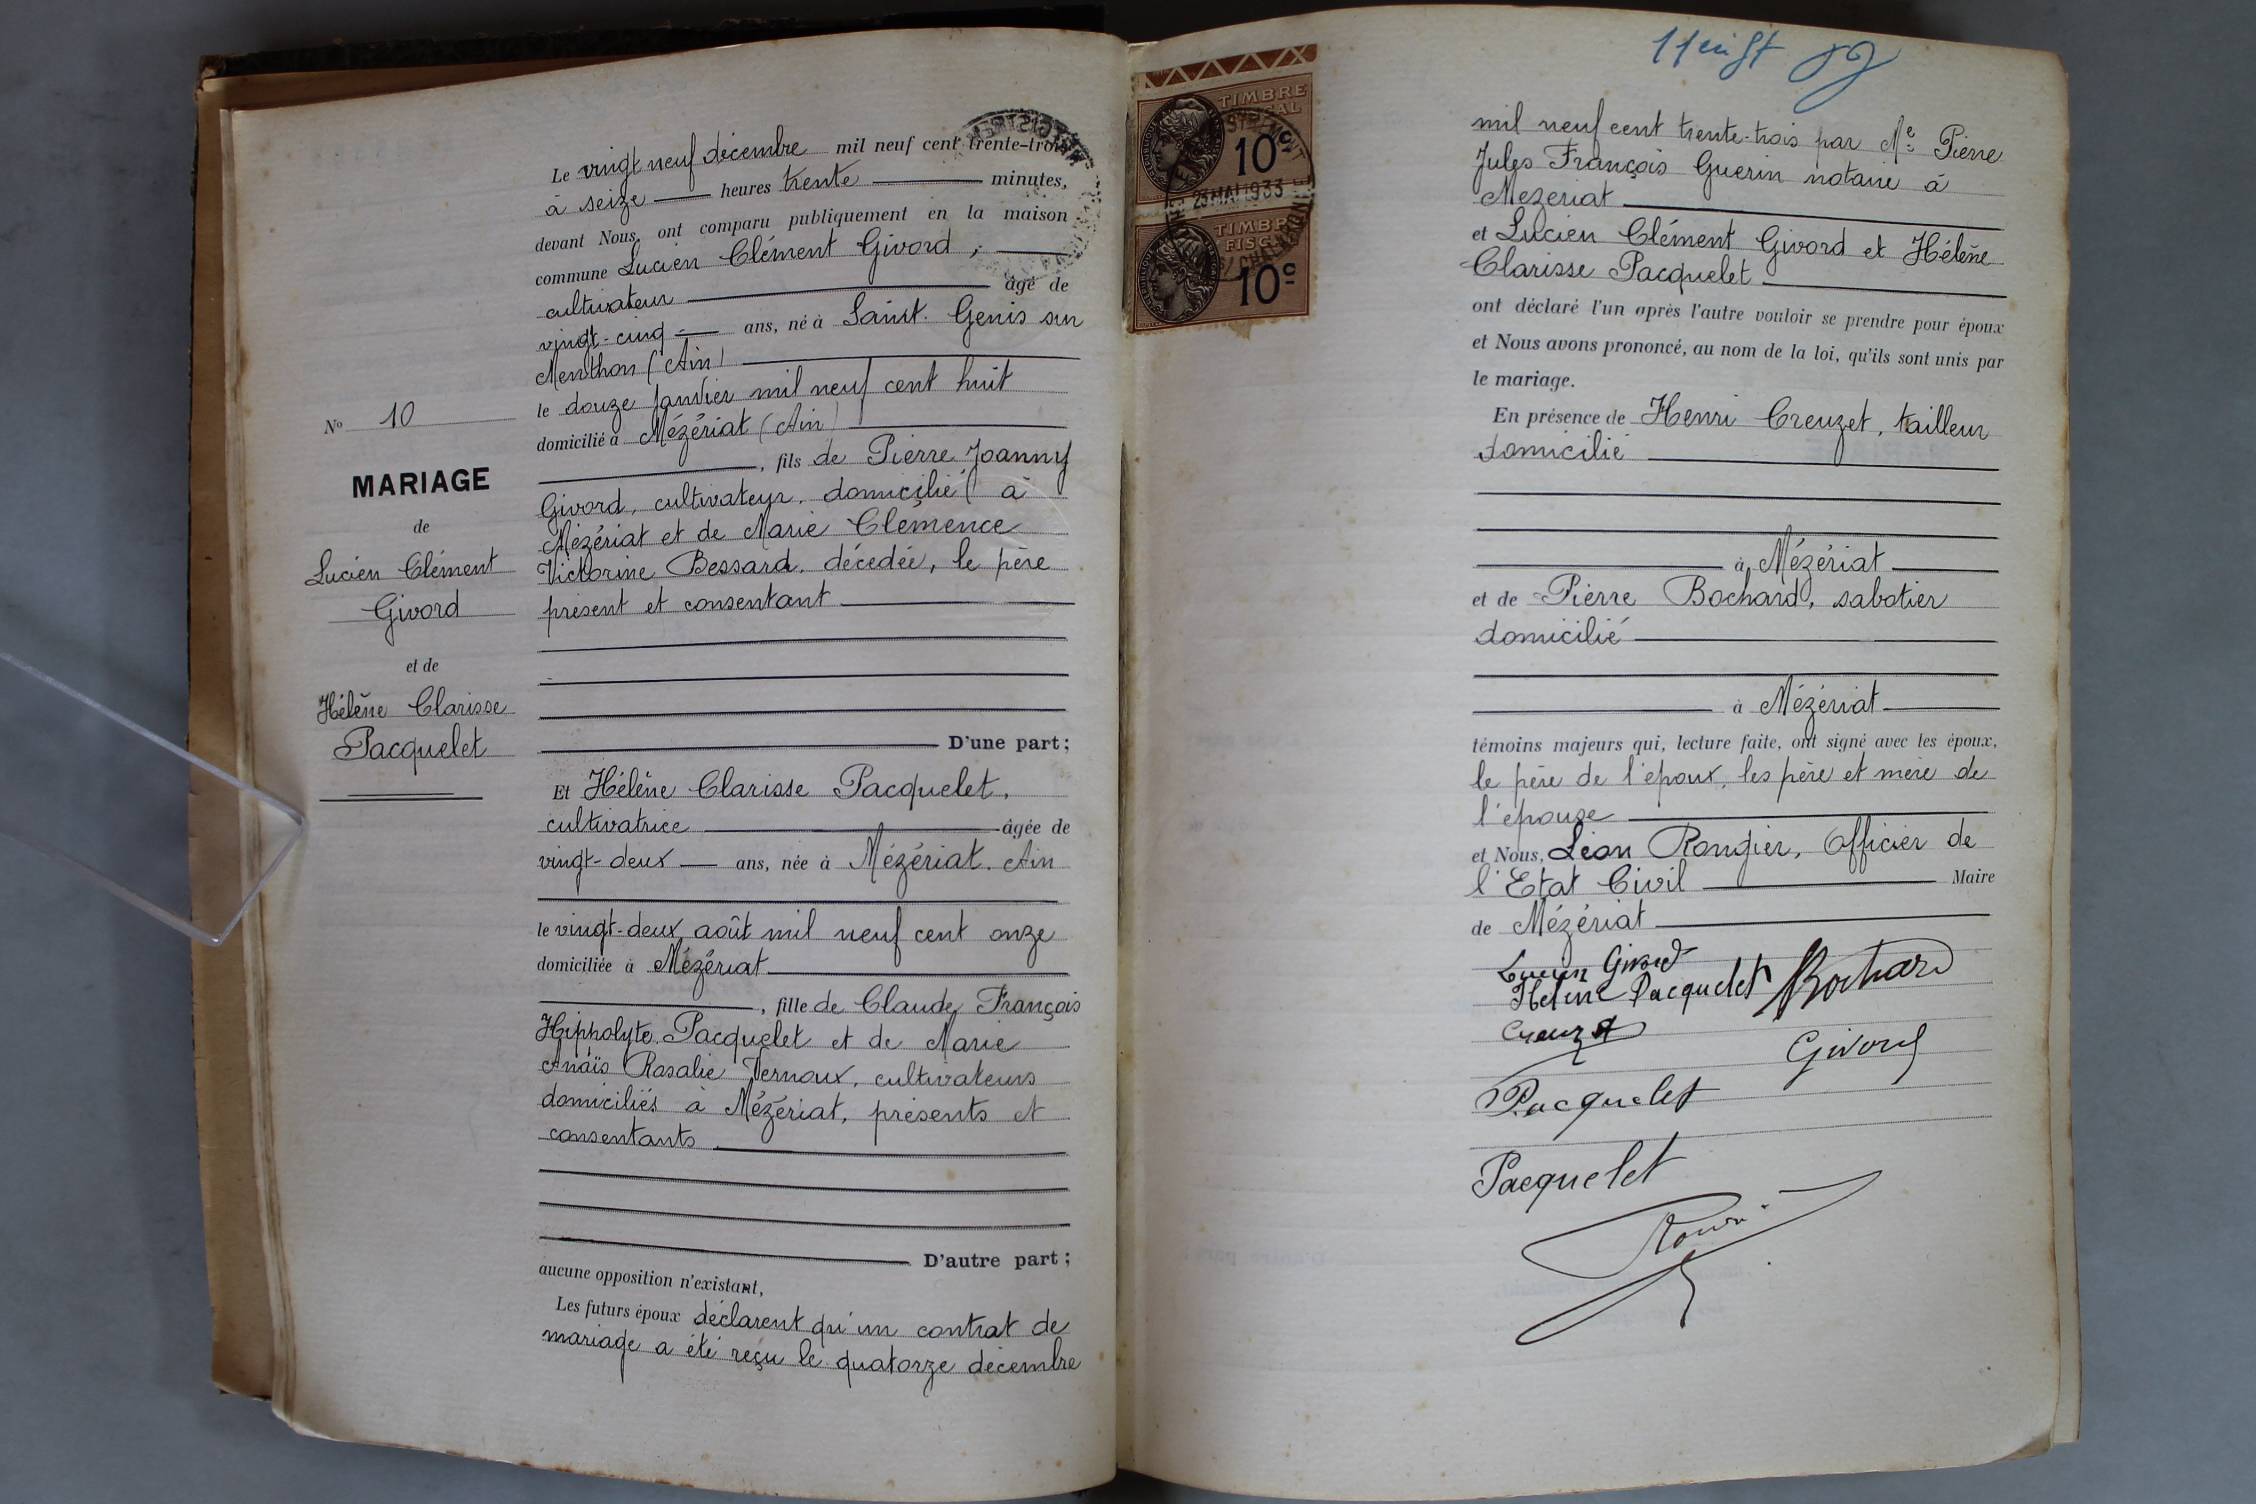 Le vingt neuf décembre mil neuf cent trente-trois
à seize heures trente minutes,
devant Nous, ont comparu publiquement en la maison
commune Lucien Clément Givord,
cultivateur âgé de
vingt-cinq ans, né à Saint. Genis sur
Menthon (Ain)
le douze janvier mil neuf cent huit
domicilié à Mézériat (Ain)
, fils de Pierre Joanny
Givord, cultivateur, domicilié à
Mézériat et de Marie Clémence
Victorine Bessard, décédée, le père
présent et consentant
D'une part;
No 10
MARIAGE
de
Lucien Clément
Givord
et de
Hélène Clarisse
Pacquelet
Et Hélène Clarisse Pacquelet,
cultivatrice âgée de
vingt-deux ans, née à Mézériat. Ain
le vingt-deux août mil neuf cent onze
domiciliée à Mézériat
, fille de Claude François
Hippholyte Pacquelet et de Marie
Anaïs Rosalie Vernoux, cultivateurs
domiciliés à Mézériat, présents et
consentants
D'autre part;
aucune opposition n'existant,
Les futurs époux déclarent qu'un contrat de
mariage a été reçu le quatorze décembre
TIMBRE
FISCAL
10c
23 MAI 1933
TIMBRE
FISCAL
10c
mil neuf cent trente-trois par Me Pierre
Jules François Guerin notaire à
Mezeriat
et Lucien Clément Givord et Hélène
Clarisse Pacquelet
ont déclaré l'un après l'autre vouloir se prendre pour époux
et Nous avons prononcé, au nom de la loi, qu'ils sont unis par
le mariage.
En présence de Henri Creuzet, tailleur
domicilié
à Mézériat
et de Pierre Bochard, sabotier
domicilié
à Mézériat
témoins majeurs qui, lecture faite, ont signé avec les époux,
le père de l'époux, les père et mère de
l'épouse
et Nous, Léon Rongier, Officier de
l'Etat Civil Maire
de Mézériat
Lucien Givord
Hélène Pacquelet Bochard
Creuzet
Givord
Pacquelet
Pacquelet